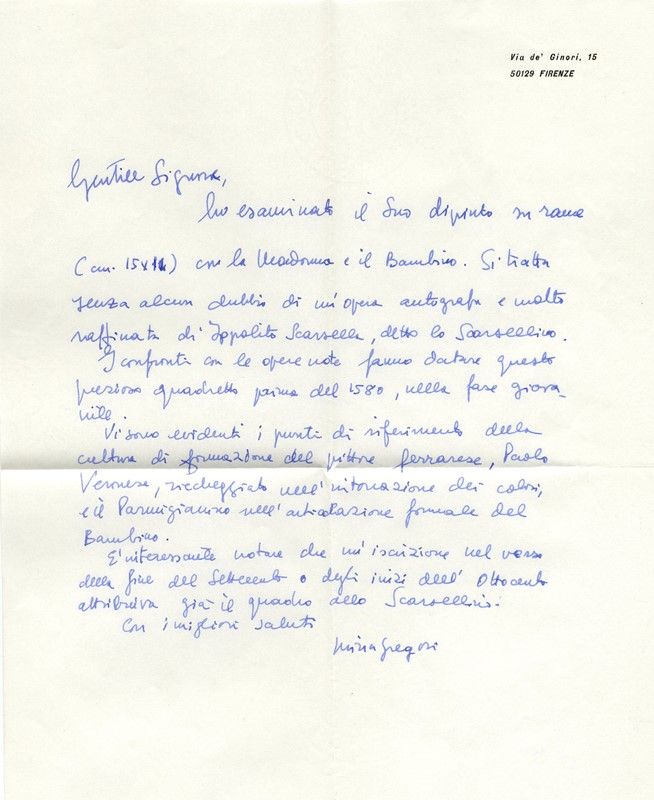 Via de' Ginori, 15
50129 FIRENZE
Gentile Signora,
ho esaminato il Suo dipinto su rame
(cm. 15x11) con la Madonna e il Bambino. Si tratta
senza alcun dubbio di un'opera autografa e molto
raffinata di Ippolito Scarsella, detto lo Scarsellino.
I confronti con le opere note fanno datare questo
prezioso quadretto prima del 1580, nella fase giova-
nile.
Vi sono evidenti i punti di riferimento della
cultura di formazione del pittore ferrarese, Paolo
Veronese, riecheggiato nell'intonazione dei colori,
e il Parmigianino nell'articolazione formale del
Bambino.
E' interessante notare che un'iscrizione nel verso
della fine del Settecento o degli inizi dell'Ottocento
attribuiva già il quadro allo Scarsellino.
Con i migliori saluti
Mina Gregori